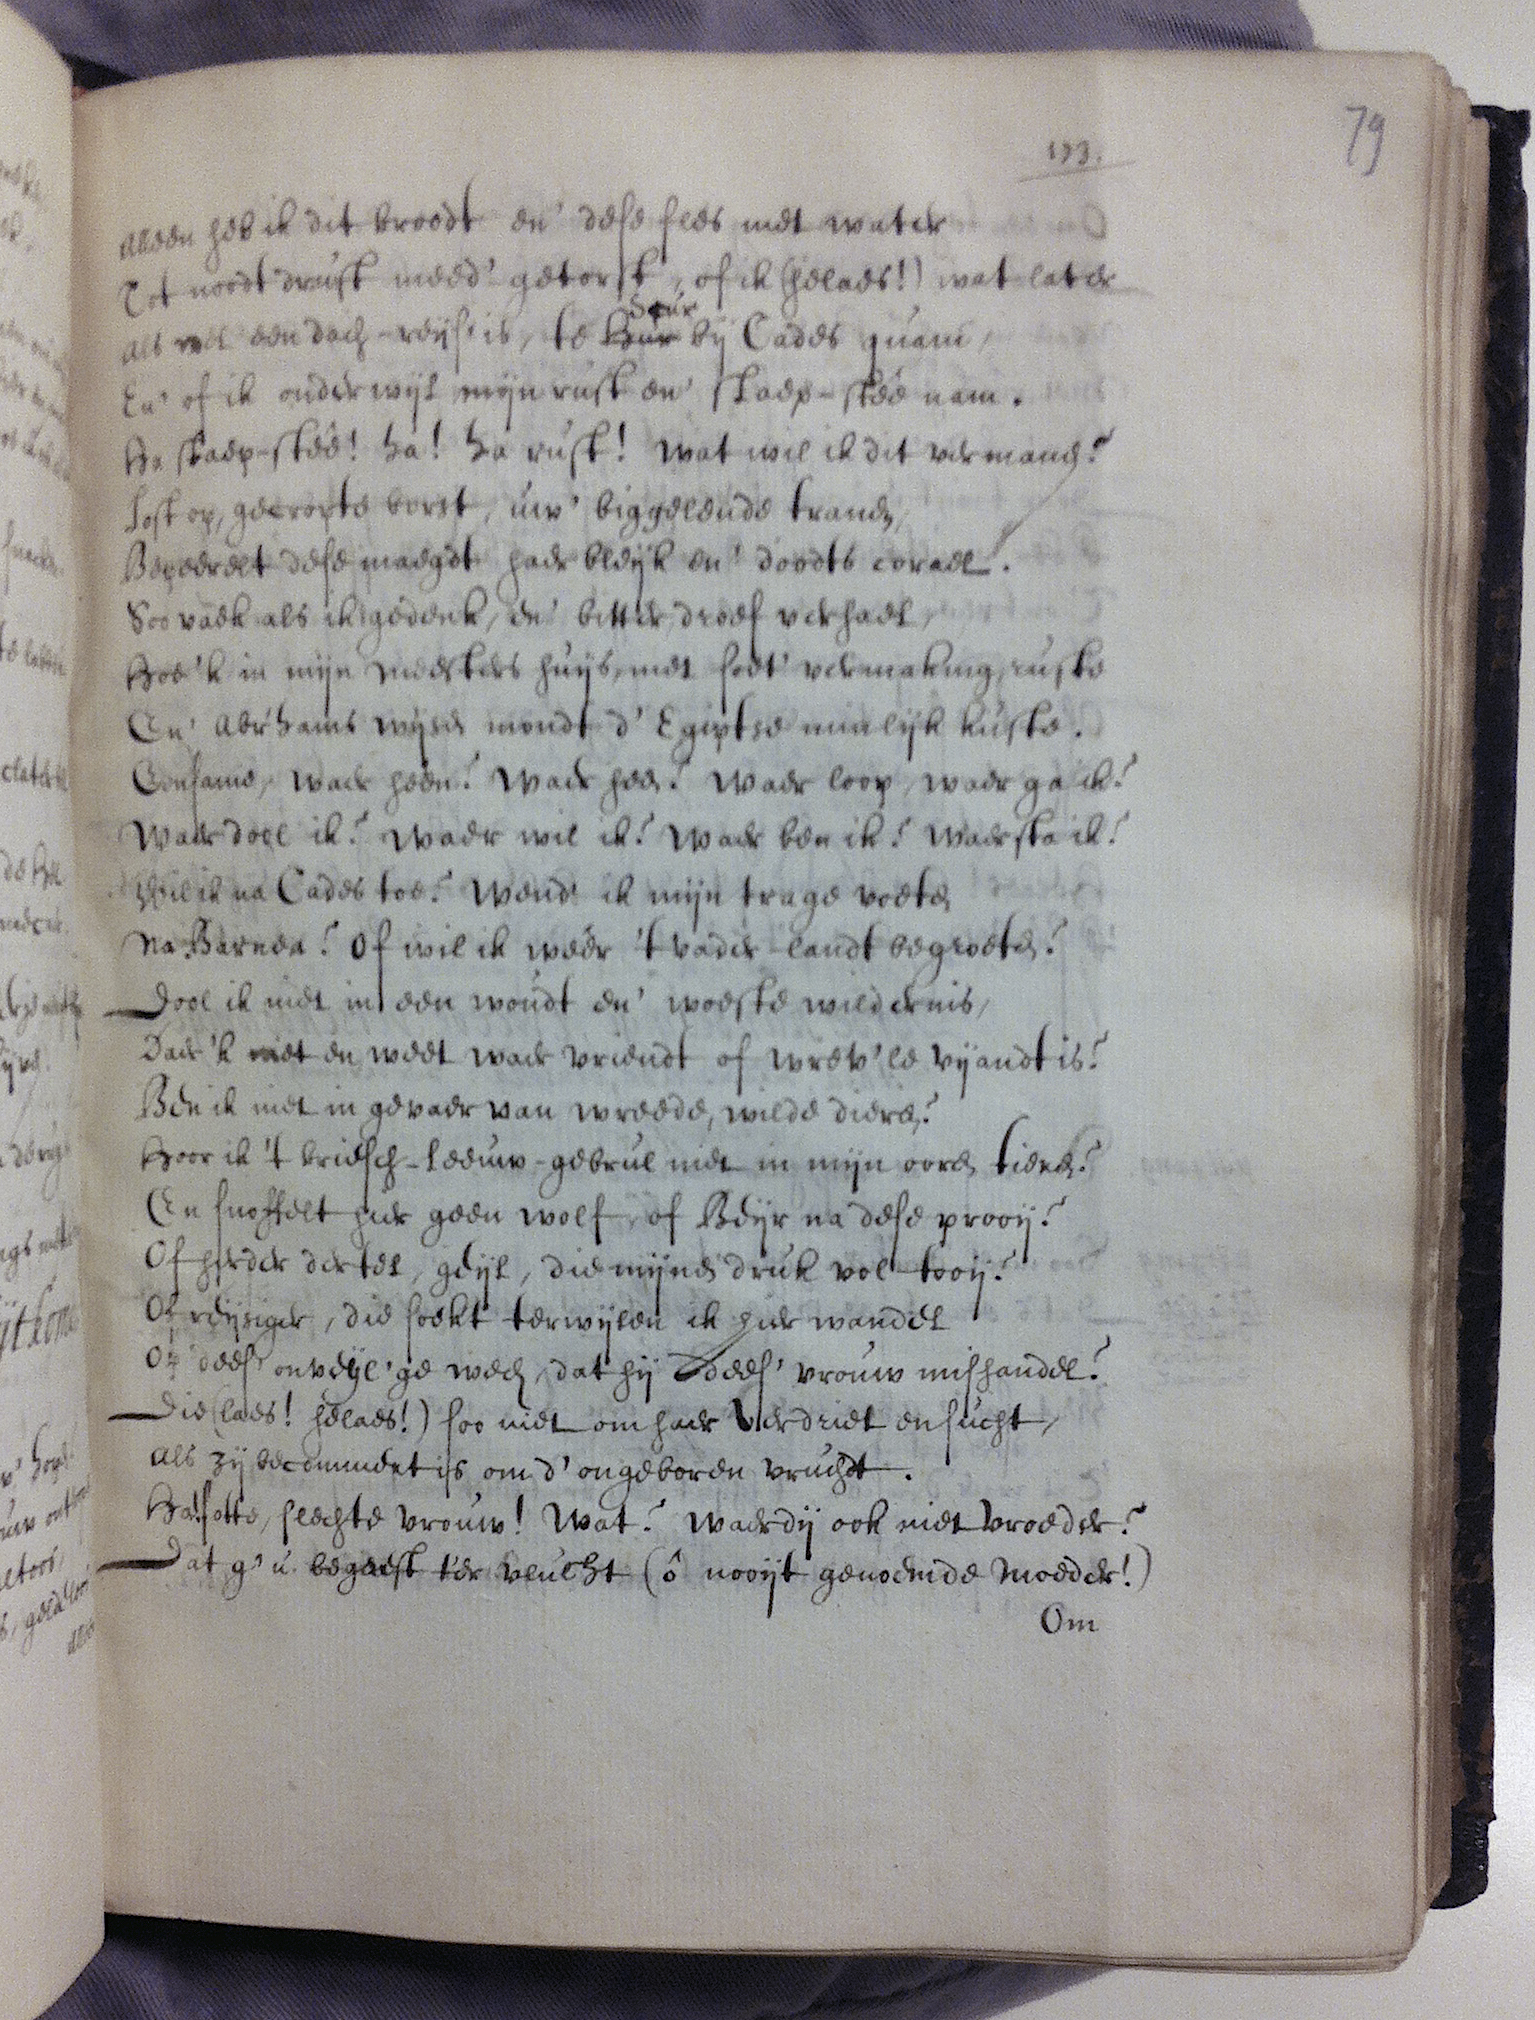 79
193.
Alleen heb ik dit broodt en' dese fles met water
Tot noodt druft meed' getorst, of ik (helaes!) wat later
Als wel een dach-reijs is, te Hur Seur bij Cades quam,
En' of ik onderwijl mijn rust en' slaep-steê nam.
Ha slaep-steê! ha! ha rust! wat wil ik dit vermanen?
Lost op, gecropte borst, uw' biggelende tranen,
Bepeerelt dese maegdt haer bleijk en' doodts corael.
Soo vaek als ik gedenk, en' bitter droef verhael,
Hoe 'k in mijn meesters huijs, met soet' vermaking, ruste
En' Abr'hams wijsen mondt d' Egiptse minlijk kuste.
Eensame, waer heen? Waer heen? Waer loop, waer ga ik?
Waer dool ik? Waer wil ik? Waer ben ik? Waer sta ik?
Wil ik na Cades toe? Wend' ik mijn trage voeten
Na Barnea? Of wil ik weêr 't vader-landt begroeten?
Dool ik niet in een woudt en' woeste wildernis,
Daer 'k niet en weet waer vriendt of wrev'le vijandt is?
Ben ik niet in gevaer van wreede, wilde dieren?
Hoor ik 't briesch-leeuw-gebrul niet in mijn ooren tieren?
En snoffelt hier geen wolf, of Beijr na dese prooij?
Of herder dertel, geijl, die mijnen druk vol-tooij?
Of reijsiger, die soekt terwijlen ik hier wandel
Op dees' onveijl'ge weg, dat hij dees' vrouw mishandel?
Die (laes! helaes!) soo niet om haer verdriet en sucht,
Als zij becommert is om d' ongeboren vrucht.
Ha! sotte, slechte vrouw! Wat? Waerdij ook niet vroeder?
Dat g' u begeest ter vlucht (ô nooijt genoemde Moeder!)
Om